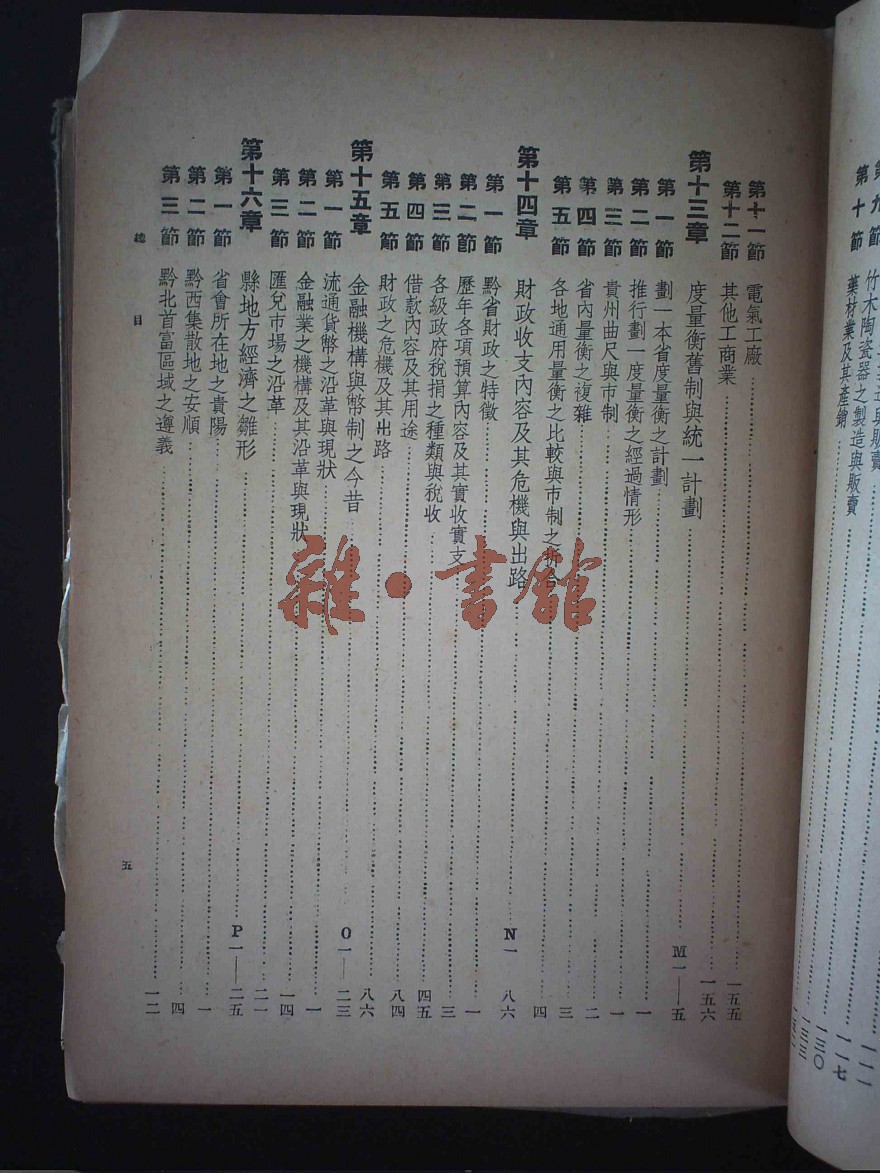 第十節 藥材業及其產銷……一一七
第十一節 電氣工廠……一五五
第十二節 其他工商業……一五六
第十三章 度量衡舊制與統一計劃……M一——五
第一節 劃一本省度量衡之計劃……一
第二節 推行劃一度量衡之經過情形……一
第三節 貴州曲尺與市制……一
第四節 省內量衡之複雜……二
第五節 各地通用量衡之比較與市制之折合……三
第十四章 財政收支內容及其危機與出路……N一 八六
第一節 黔省財政之特徵……一
第二節 歷年各項預算內容及其實收實支……三
第三節 各級政府稅捐之種類與稅收……
第四節 借款內容及其用途……四五
第五節 財政之危機及其出路……八四
第十五章 金融機構與幣制之今昔……O一——二三
第一節 流通貨幣之沿革與現狀……
第二節 金融業之機構及其沿革與現狀……一
第三節 匯兌市場之沿革……一四
第十六章 縣地方經濟之雛形……P一——二五
第一節 省會所在地之貴陽……一
第二節 黔西集散地之安順……四
第三節 黔北首富區域之遵義……一二
總目
五
雜·書館